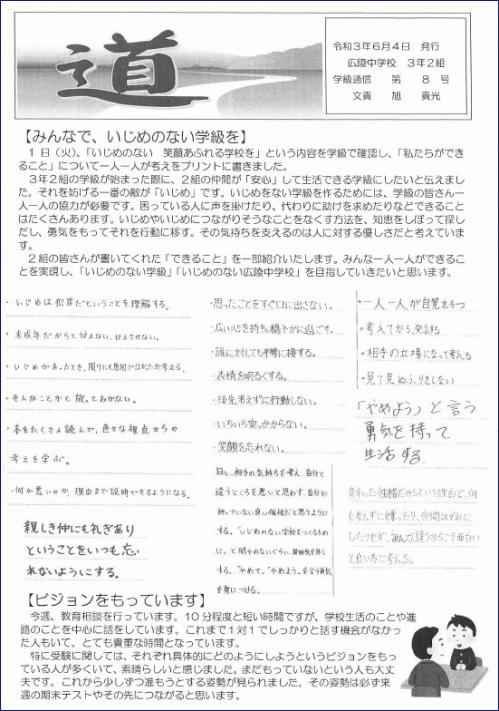 道
令和3年6月4日 発行
広陵中学校 3年2組
学級通信 第 8 号
文責 旭 貴光
【みんなで、いじめのない学級を】
1日(火)、「いじめのない 笑顔あふれる学校を」という内容を学級で確認し、「私たちができ
ること」について一人一人が考えをプリントに書きました。
3年2組の学級が始まった際に、2組の仲間が「安心」して生活できる学級にしたいと伝えまし
た。それを妨げる一番の敵が「いじめ」です。いじめをない学級を作るためには、学級の皆さん一
人一人の協力が必要です。困っている人に声を掛けたり、代わりに助けを求めたりなどできること
はたくさんあります。いじめやいじめにつながりそうなことをなくす方法を、知恵をしぼって探し
だし、勇気をもってそれを行動に移す。その気持ちを支えるのは人に対する優しさだと考えていま
す。
2組の皆さんが書いてくれた「できること」を一部紹介いたします。みんな一人一人ができるこ
とを実現し、「いじめのない学級」「いじめのない広陵中学校」を目指していきたいと思います。
・いじめは犯罪だということを理解する。
・未成年だからと甘えない、甘えさせない。
・いじめがあったとき、周りにも原因が
・そんなことかと放っておかない。
・本をたくさん読んで、色々な視点からの
考えを学ぶ。
・何が悪いのか、理由まで説明できるようになる。
親しき仲にも礼ぎあり
ということをいつも忘
れないようにする。
・思ったことをすぐ口に出さない。
・広い心を持ち、穏やかに過ごす。
・誰に対しても平等に接する。
・表情を明るくする。
・後先考えずに行動しない。
・いちいち突っかからない。
・笑顔を忘れない。
相手の気持ちを考え、自分と
違うところを悪いと思わず、自分が
持っていない良い個性だと思うように
する。「いじめのない学校をつくるため
に」と聞かれないぐらい、雰囲気を良く
する。「やめて」「やめよう」を言う勇気
を身につける。
・一人一人が自覚をもつ
・考えてから発言する
・相手の立場になって考える
・見て見ぬふりをしない
「やめよう」と言う
勇気を持って
生活する
変わった性格だからという理由で、何
も考えずに嫌ったり、仲間はずれに
したりせず、みんな違うからこそ面白い
と良い方に考える。
【ビジョンをもっています】
今週、教育相談を行っています。10分程度と短い時間ですが、学校生活のことや進
路のことを中心に話をしています。これまで1対1でしっかりと話す機会がなかっ
た人もいて、とても貴重な時間となっています。
特に受験に関しては、それぞれ具体的にどのようにしようというビジョンをもっ
ている人が多くいて、素晴らしいと感じました。まだもっていないという人も大丈
夫です。これから少しずつ進もうとする姿勢が見られました。その姿勢は必ず来
週の期末テストやその先につながると思います。